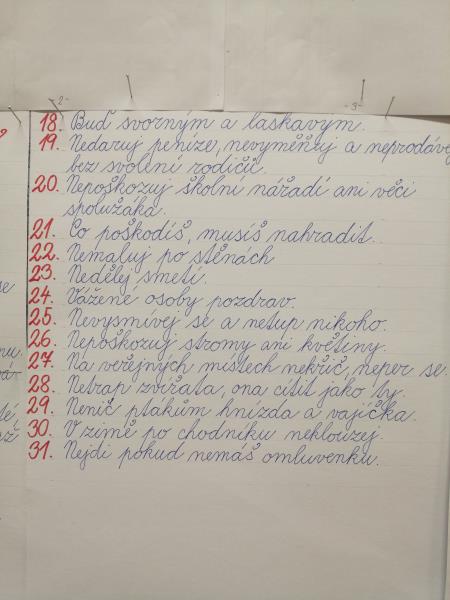 -2-
-3-
18. Buď svorným a laskavým.
19. Nedaruj peníze, nevyměňuj a neprodávej
bez svolení rodičů.
20. Nepoškozuj školní nářadí ani věci
spolužáka.
21. Co poškodíš, musíš nahradit.
22. Nemaluj po stěnách
23. Nedělej smetí.
24. Vážené osoby pozdrav.
25. Nevysmívej se a netup nikoho.
26. Nepoškozuj stromy ani květiny.
27. Na veřejných místech nekřič, neper se.
28. Netrap zvířata, ona cítit jako ty.
29. Nenič ptákům hnízda a vajíčka.
30. V zimě po chodníku neklouzej.
31. Nejdi pokud nemáš omluvenku.